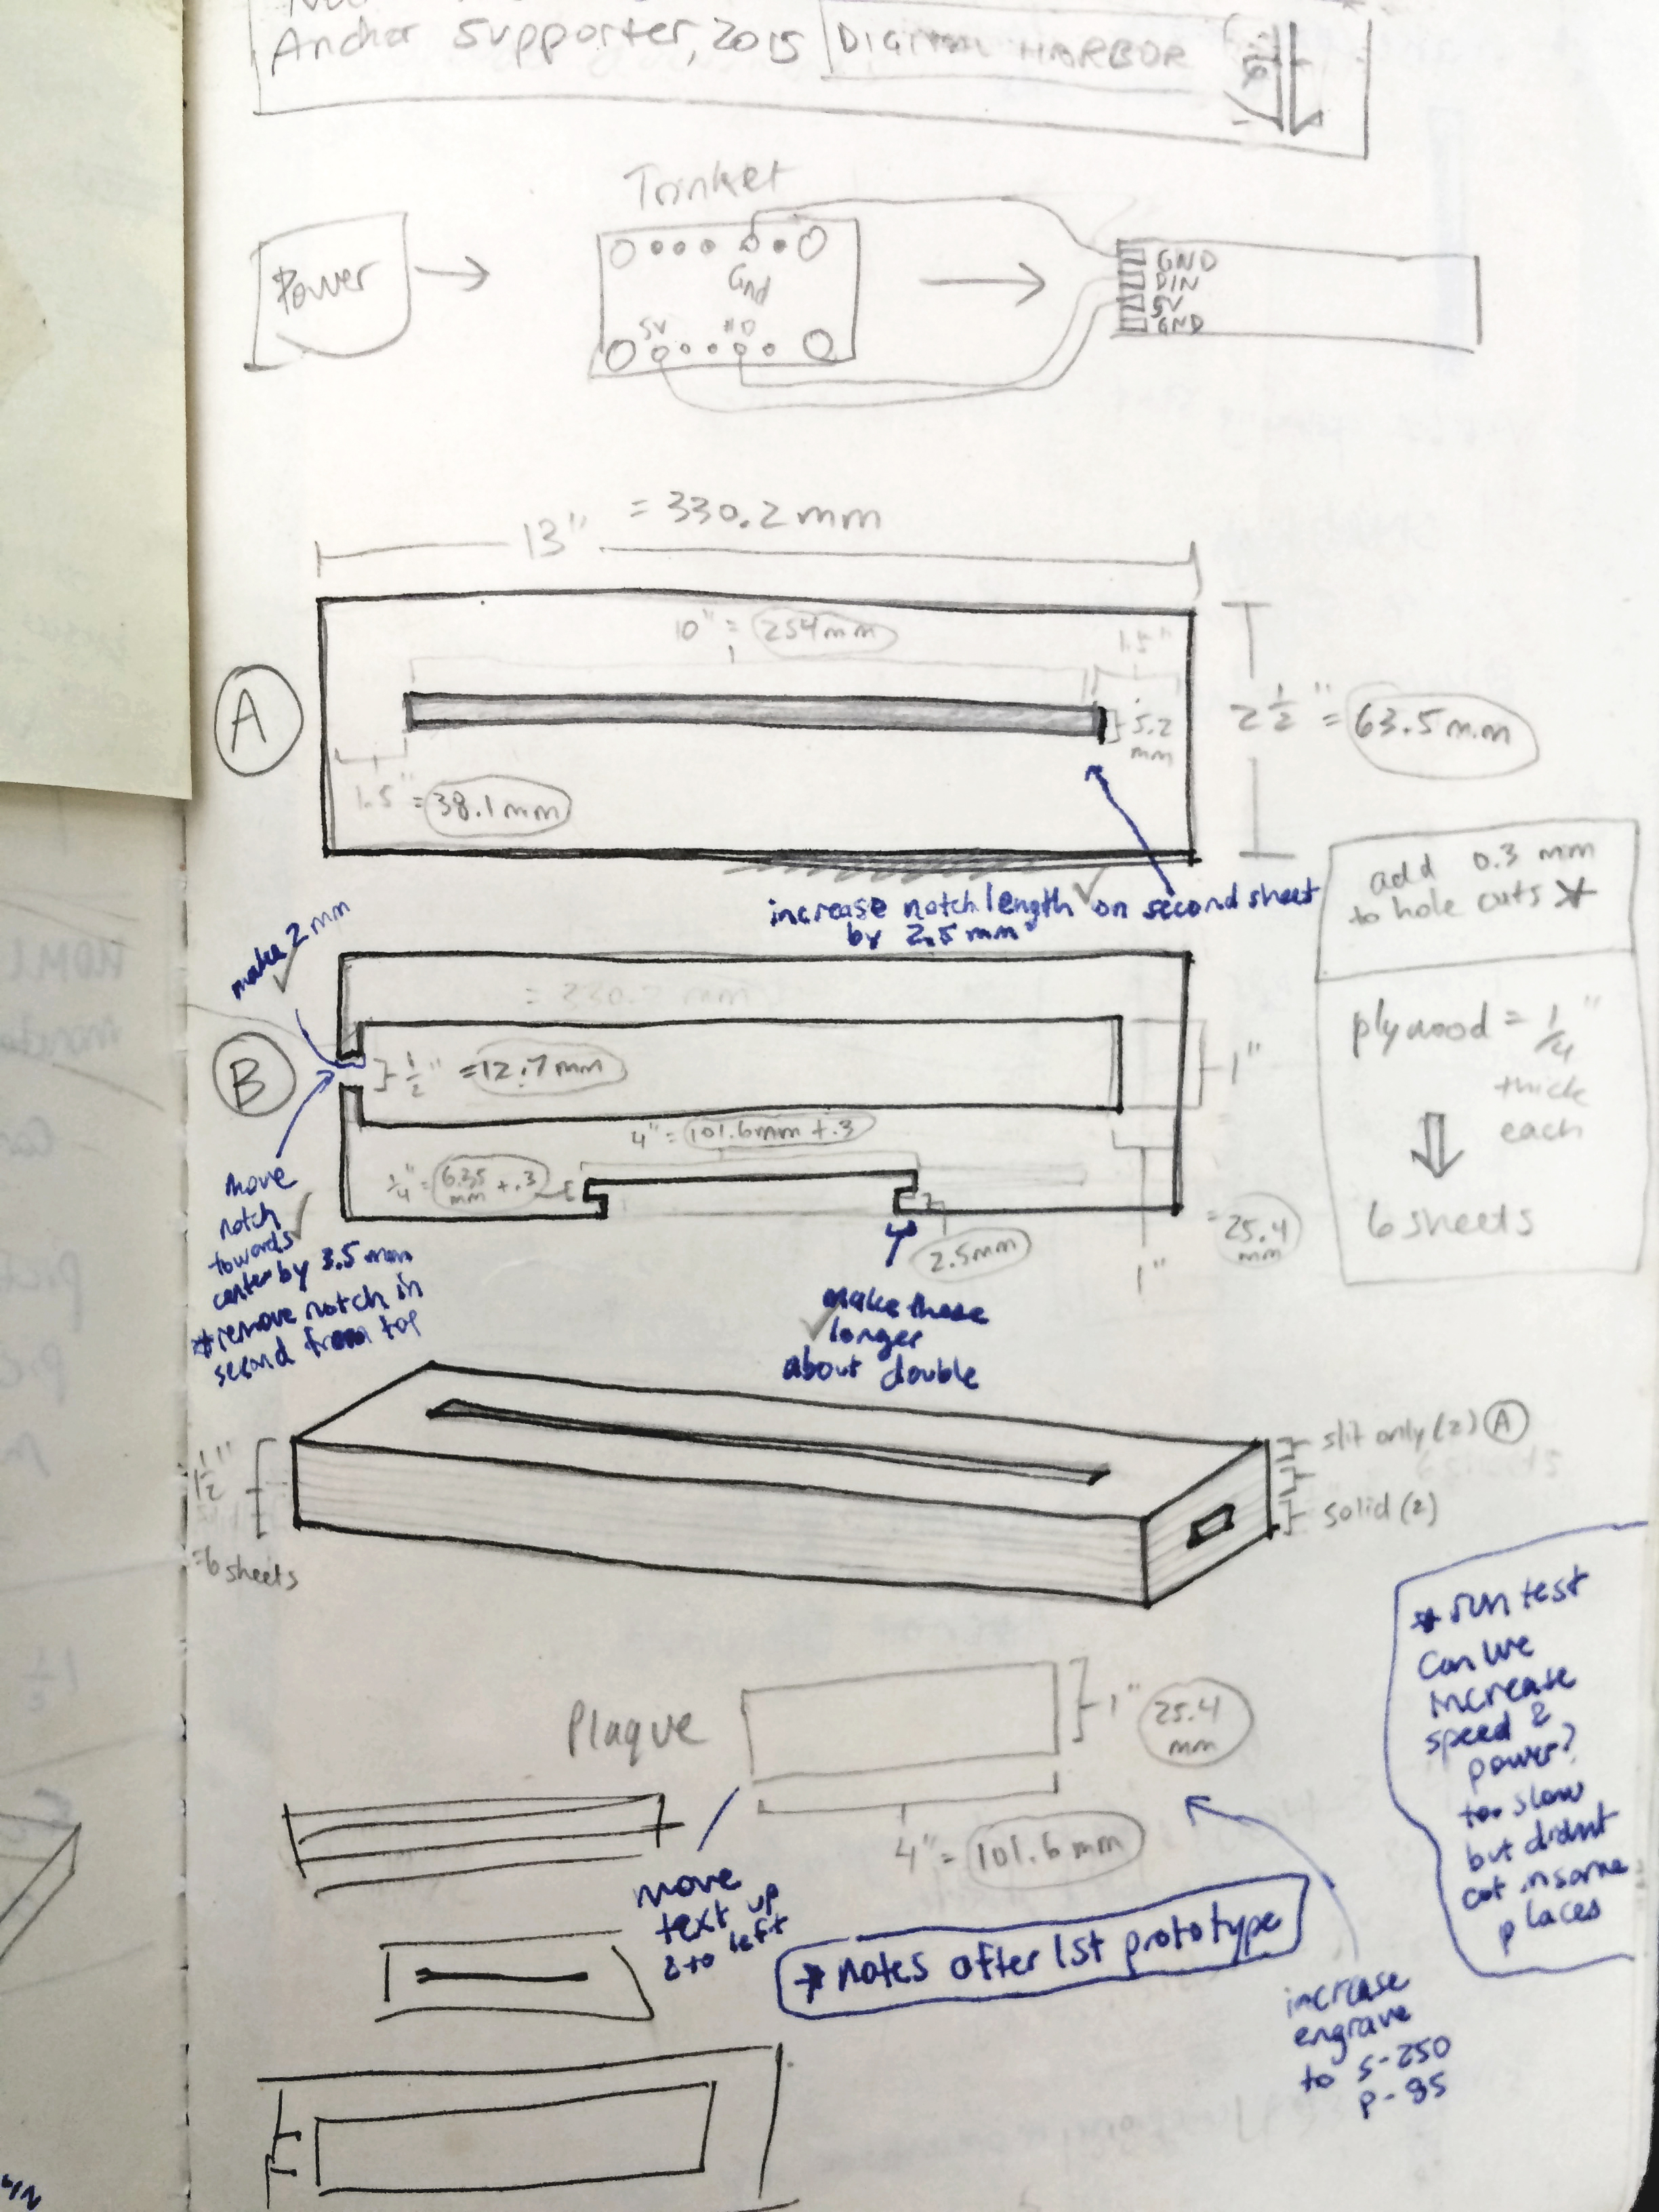 Anchor Supporter, 2015 DIGITAL HARBOR
Trinket
Power
Gnd
5V #0
GND
DIN
5V
GND
13" = 330.2 mm
10" = 254mm
1.5"
A
5.2
mm
2 1/2" = 63.5 mm
1.5" = 38.1 mm
increase notch length on second sheet
by 2.5 mm
add 0.3 mm
to hole cuts *
plywood = 1/4"
thick
each
6 sheets
make 2 mm
B
1/2" = 12.7 mm
1"
4" = 101.6mm + .3
1/4" = 6.35
mm + .3
2.5mm
1"
= 25.4
mm
move
notch
towards
center by 3.5 mm
* remove notch in
second from top
make these
longer
about double
1 1/2"
= 6 sheets
slit only (2) A
solid (2)
* run test
Can we
increase
speed &
power?
too slow
but didnt
cut in some
places
Plaque
1" 25.4
mm
4" = 101.6 mm
move
text up
& to left
* notes after 1st prototype
increase
engrave
to s-250
p-95